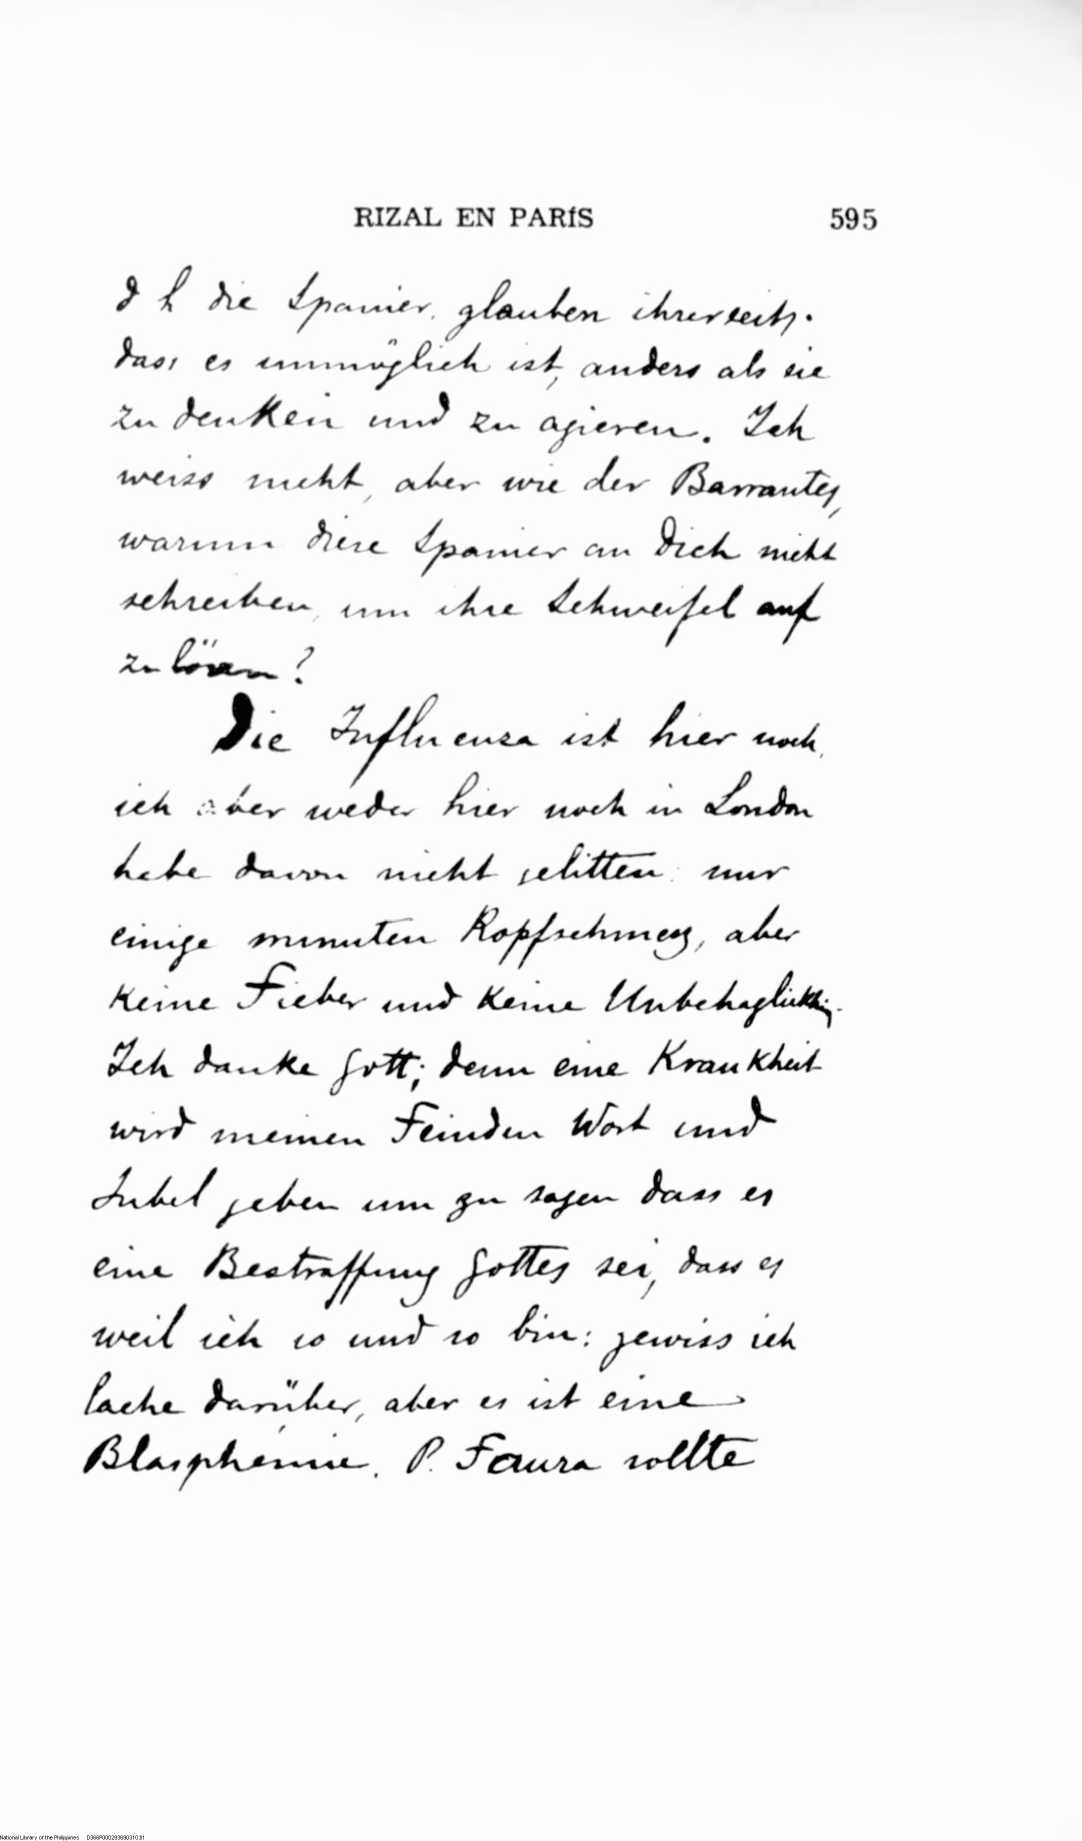 RIZAL EN PARÍS 595
d h die Spanier, glauben ihrerseits.
dass es unmöglich ist, anders als sie
zu denken und zu agieren. Ich
weiss nicht, aber wie der Barrantes,
warum diese Spanier an Dich nicht
schreiben, um ihre Schweifel auf
zu lösen?
Die Influenza ist hier noch,
ich aber weder hier noch in London
habe davon nicht gelitten: nur
einige minuten Kopfschmerz, aber
keine Fieber und keine
Ich danke Gott; denn eine Krankheit
wird meinen Feinden Wort und
Jubel geben um zu sagen dass es
eine Bestraffung Gottes sei, dass es
weil ich so und so bin: gewiss ich
lache darüber, aber es ist eine
Blasphémie. P. Faura sollte
National Library of the Philippines